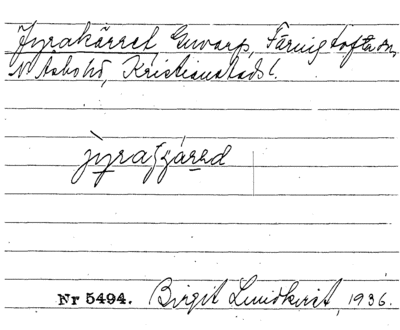 Jyrakärret, Guvarp, Färingtofta sn,
N Åsbo hd, Kristianstads l.
Nr 5494. Birgit Lundkvist, 1936.